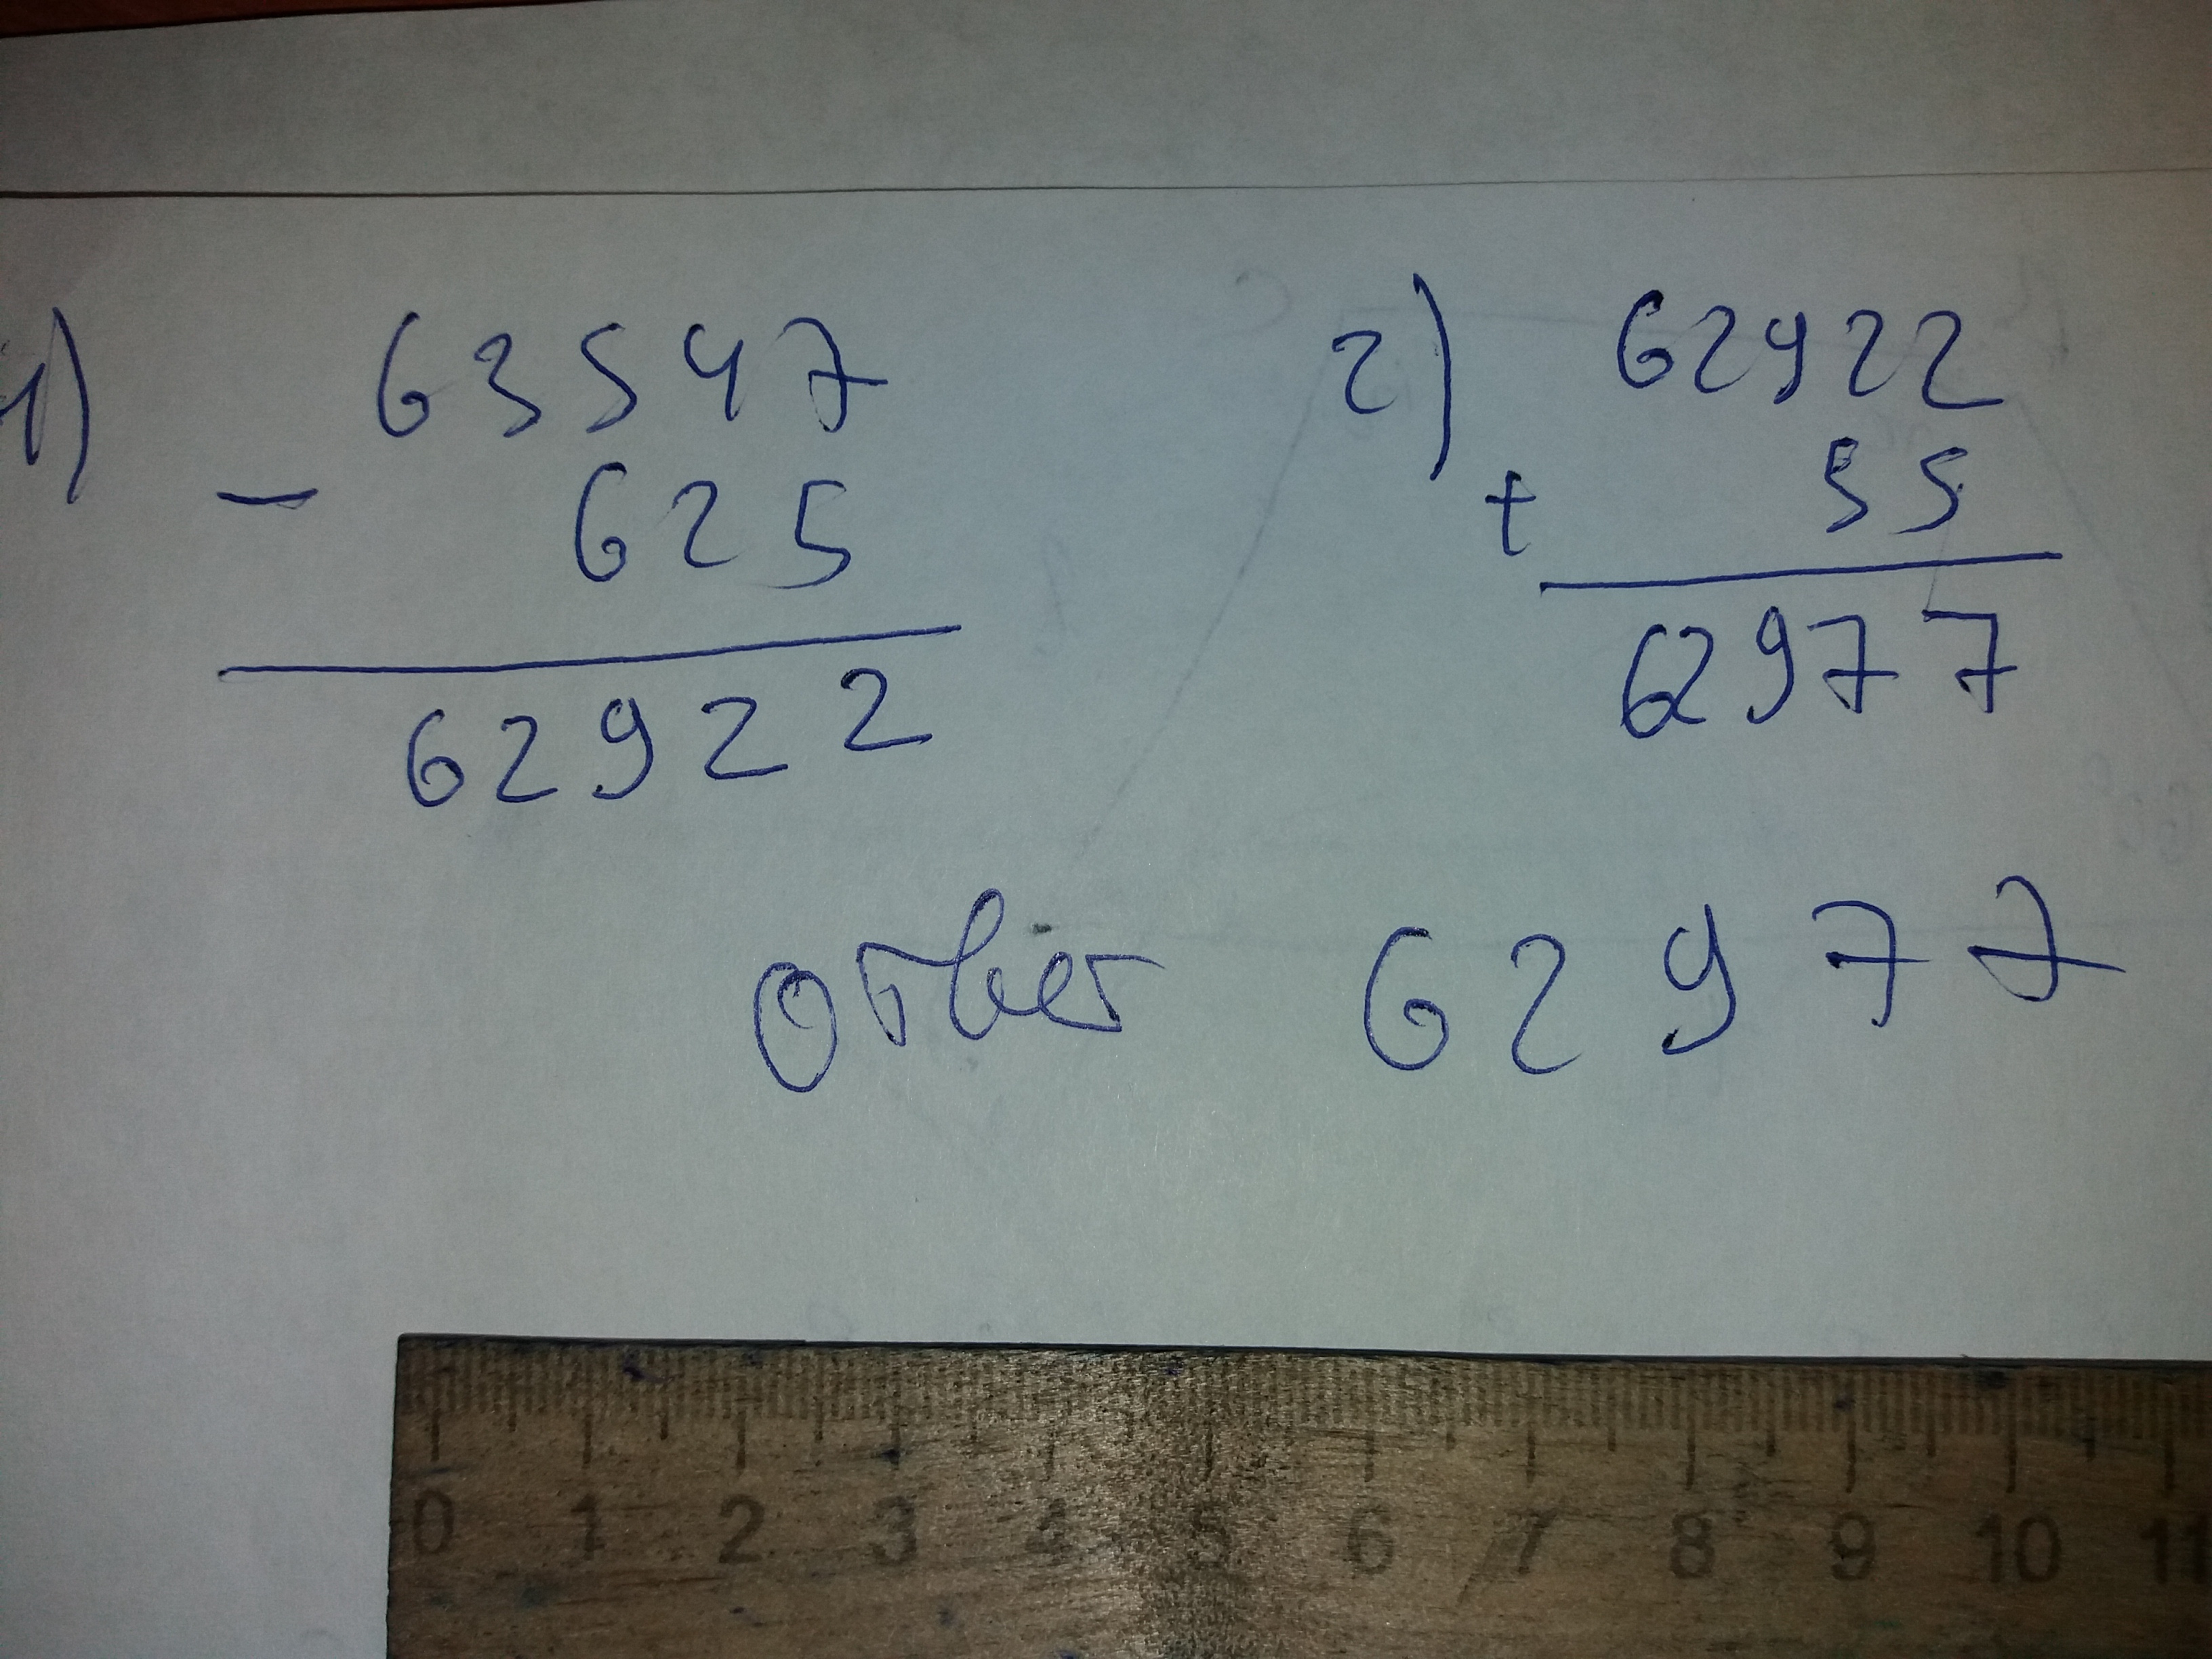 1) 63547
- 625
62922
2) 62922
+ 55
62977
Ответ 62977
0 1 2 3 4 5 6 7 8 9 10 11